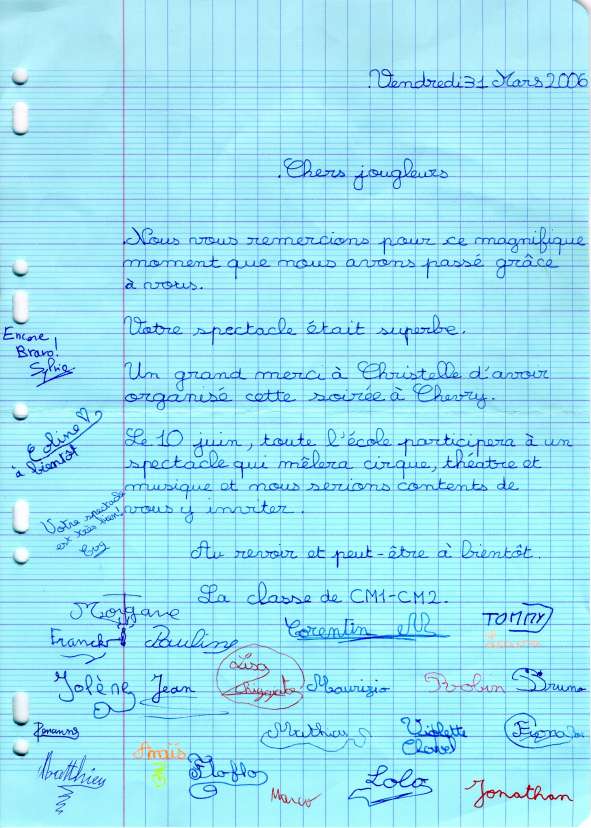 Vendredi 31 Mars 2006
Chers jougleurs
Nous vous remercions pour ce magnifique
moment que nous avons passé grâce
à vous.
Votre spectacle était superbe.
Un grand merci à Christelle d'avoir
organisé cette soirée à Chevry.
Le 10 juin, toute l'école participera à un
spectacle qui mêlera cirque, théatre et
musique et nous serions contents de
vous y inviter.
Au revoir et peut-être à bientôt.
La classe de CM1-CM2.
Encore
Bravo!
Sylvie
Coline
à bientôt
Votre spectacle
est très bien!
Morgane
Franck Pauline Corentin TOMMY
Jolène Jean Lisa Maurizio Robin Bruno
Mathas Violette
Anaïs
Matthieu Floflo Marco Lolo Jonathan